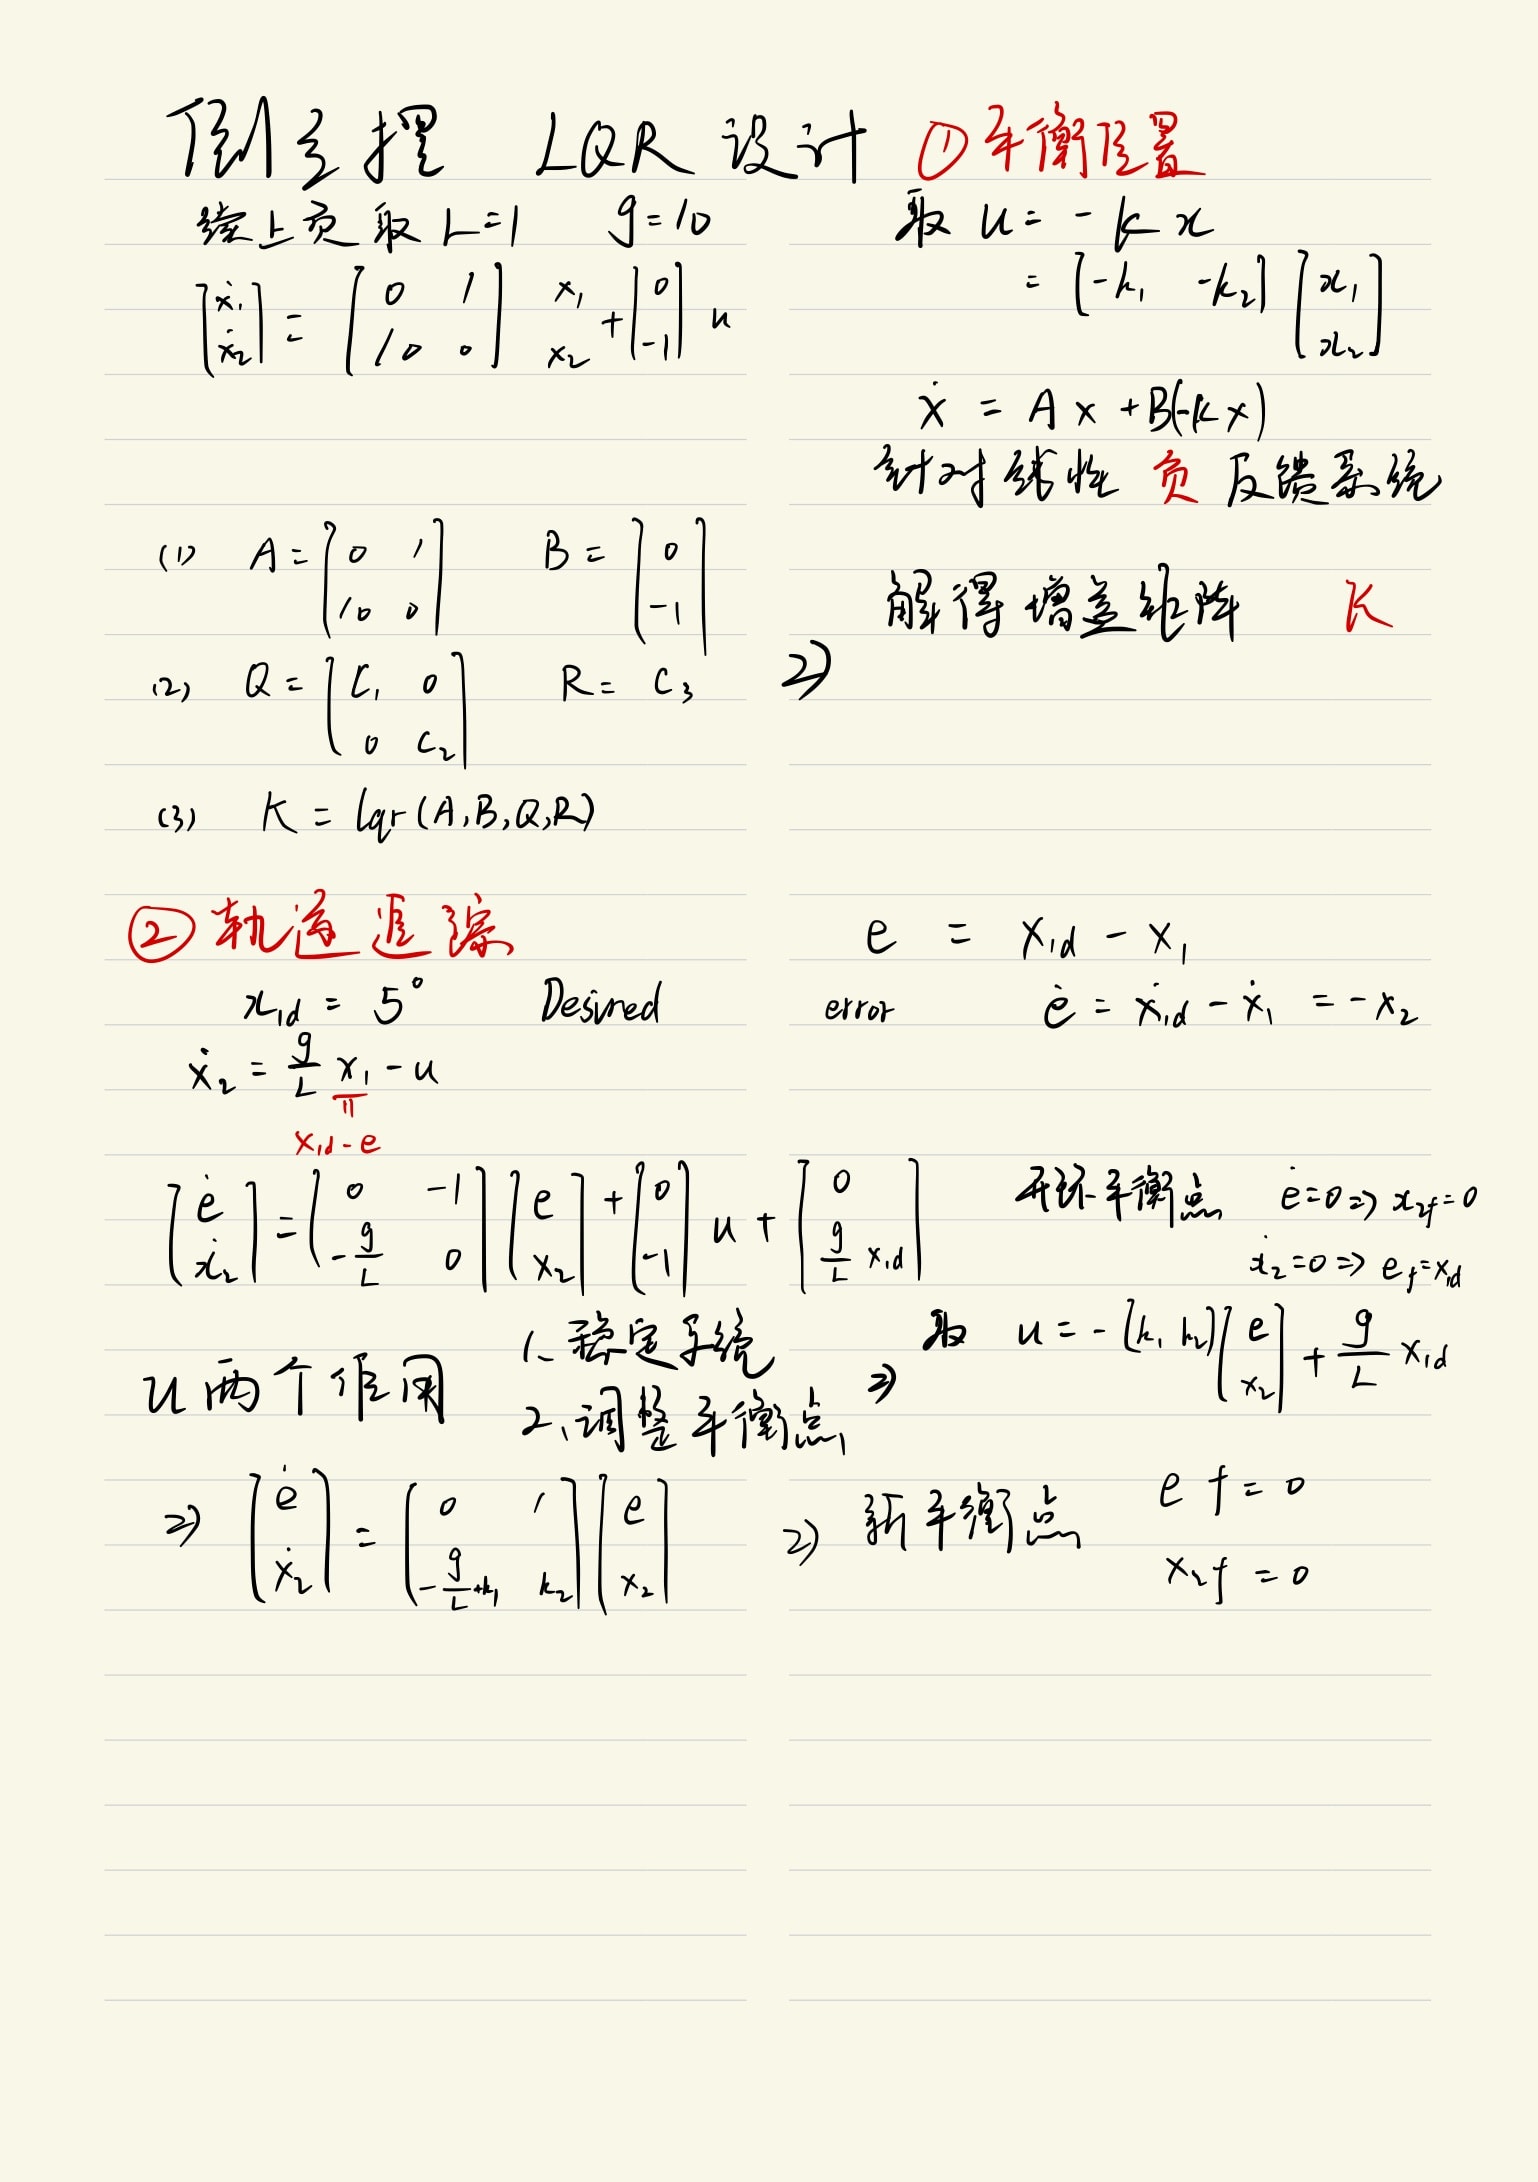 倒立摆 LQR 设计 ①平衡位置
续上页 取 L=1 g=10
[ẋ₁ ẋ₂] = [0 1; 10 0] x₁ x₂ + [0; -1] u
取 u = -kx
= [-k₁ -k₂] [x₁; x₂]
ẋ = Ax + B(-kx)
针对线性 负 反馈系统
(1) A = [0 1; 10 0] B = [0; -1]
(2) Q = [C₁ 0; 0 C₂] R = C₃
(3) K = lqr(A,B,Q,R)
⇒ 解得增益矩阵 K
②轨道追踪
x₁d = 5° Desired
e = x₁d - x₁
error ė = ẋ₁d - ẋ₁ = -x₂
ẋ₂ = g/L x₁ - u
=
x₁d - e
[ė; ẋ₂] = [0 -1; -g/L 0] [e; x₂] + [0; -1] u + [0; g/L x₁d]
开环平衡点 ė=0 ⇒ x₂f=0
ẋ₂=0 ⇒ e f=x₁d
u两个作用 1、稳定系统
2、调整平衡点
⇒ 取 u = -[k₁ k₂] [e; x₂] + g/L x₁d
⇒ [ė; ẋ₂] = [0 1; -g/L+k₁ k₂] [e; x₂]
⇒ 新平衡点 e f = 0
x₂f = 0